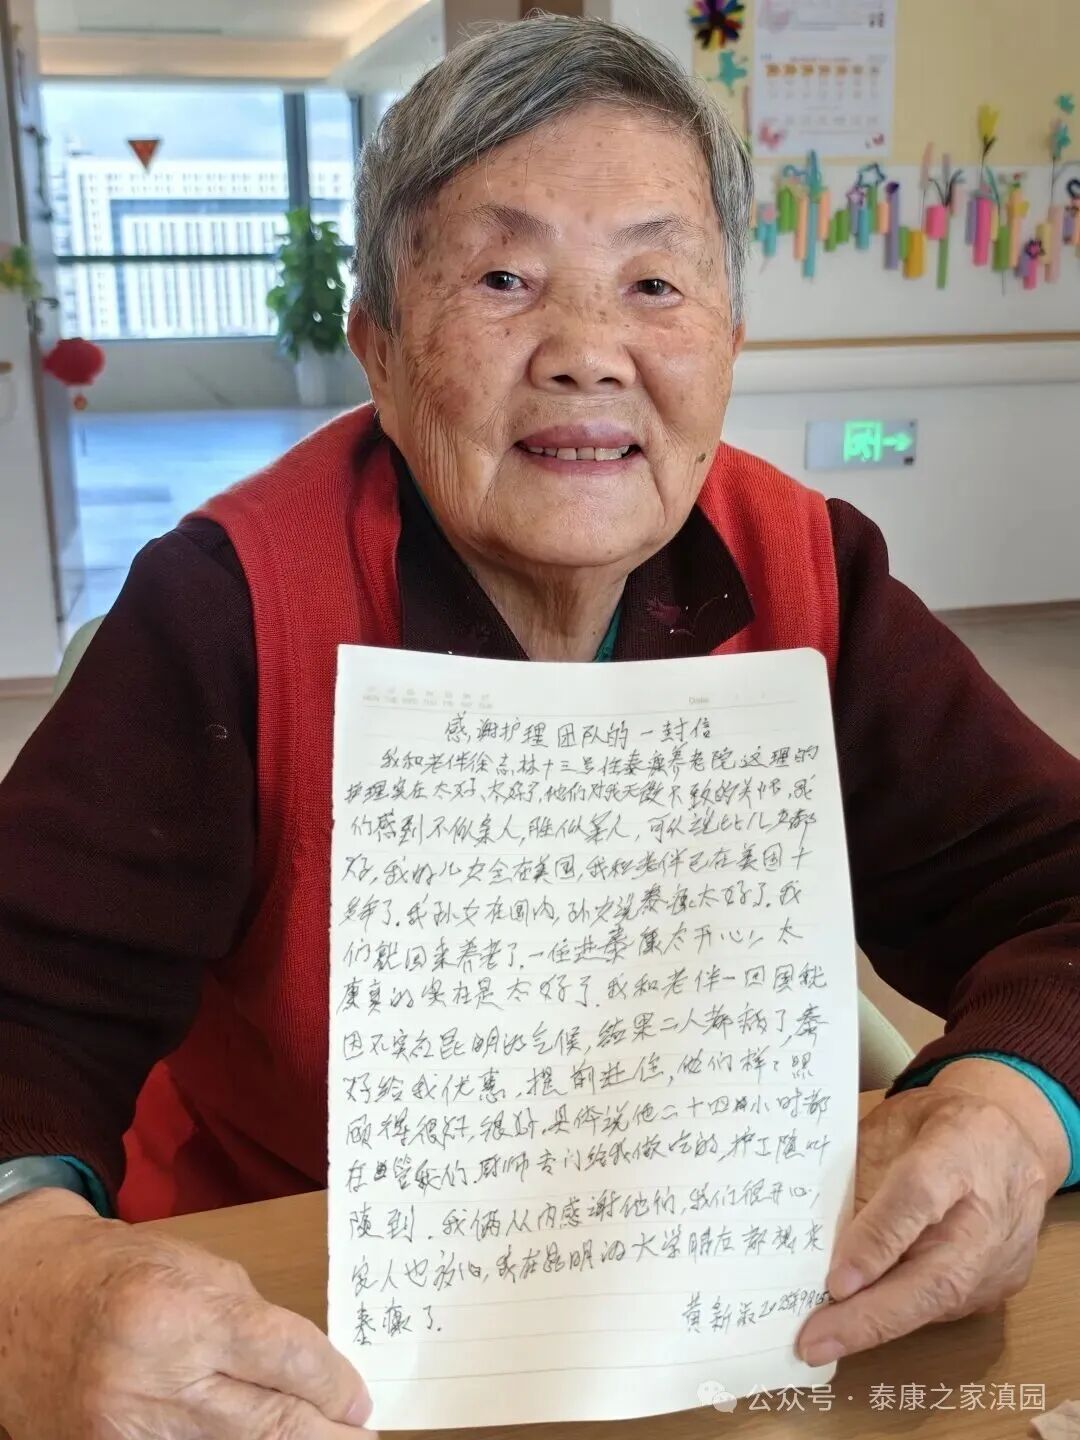 MON TUE WED THU FRI SAT SUN
Date
感谢护理团队的一封信
我和老伴徐志林十三号住泰康养老院这理的
护理实在太好、太好了,他们对我无微不致的关怀,我
们感到不似亲人,胜似亲人,可以说比儿女都
好,我的儿女全在美国,我和老伴已在美国十
年了.我孙女在国内,孙女说泰康太好了.我
们就回来养老了.一住进泰康太开心!太
康真的实在是太好了.我和老伴一回国就
因不实应昆明的气候,结果二人都病了,泰
好给我优惠,提前进住,他们样々照
顾得很好,很好.具体说他二十四小时都
在管我们.厨师专门给我做吃的,护工随叫
随到.我俩从内感谢他们,我们很开心,
家人也放心,我在昆明的大学朋友都想来
泰康了.
黄新淑2025年9月15
公众号·泰康之家滇园